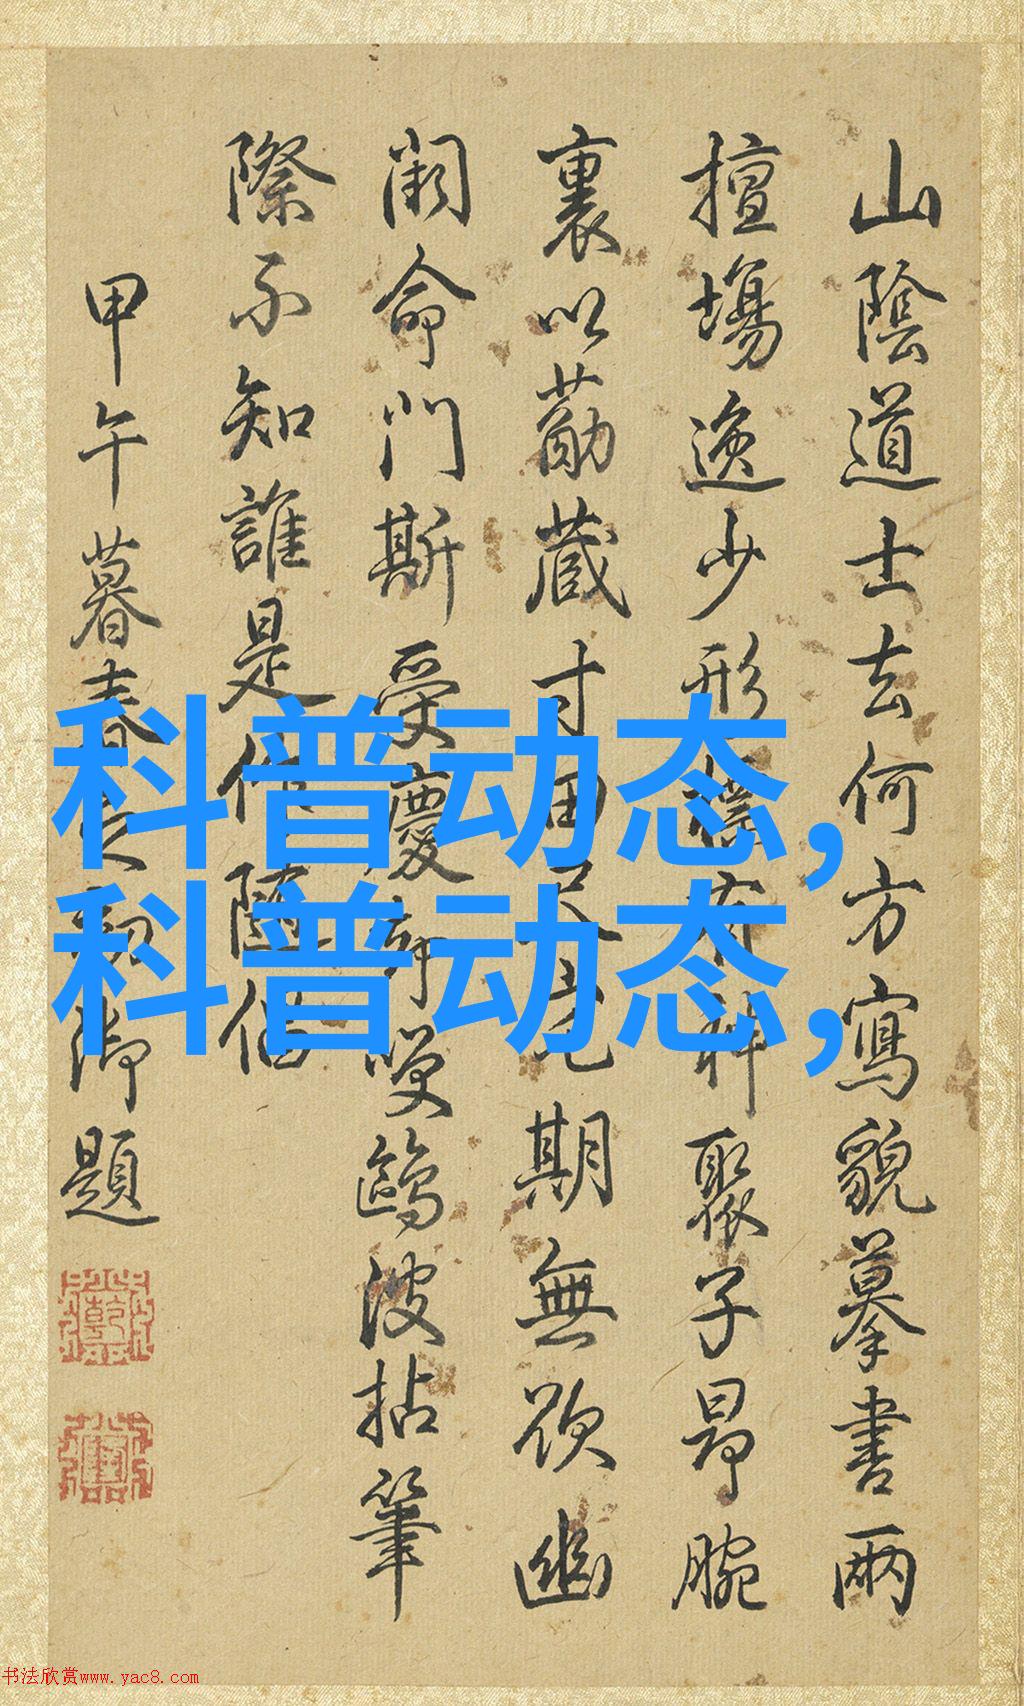 山陰道士去何方寫貌摹書兩
擅場逸少形神聚子昂腕
裏以蔵寸田尺期無欲幽
闕命門斯受慶鷗波拈筆
際不知誰是
甲午暮春之初御題
科普动态,
科普动态,
书法欣赏www.yac8.com